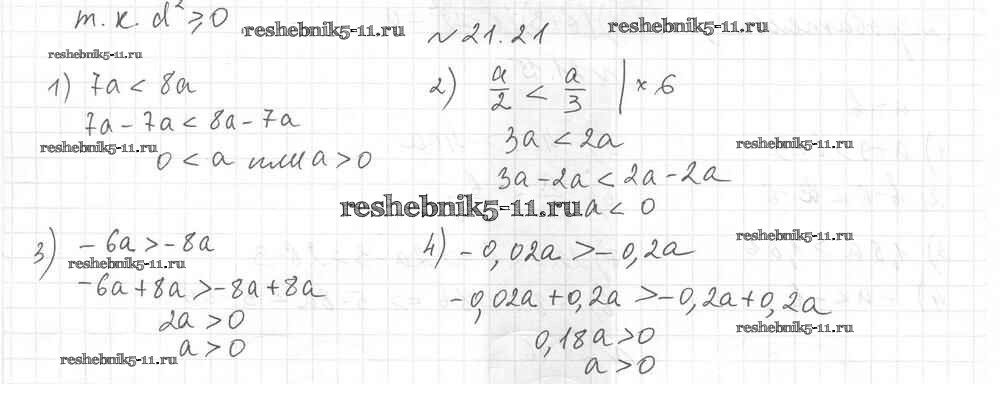 т.к. d² ≥ 0
reshebnik5-11.ru
№ 21.21
reshebnik5-11.ru
reshebnik5-11.ru
1) 7a < 8a
7a - 7a < 8a - 7a
reshebnik5-11.ru
0 < a или a > 0
2) a/2 < a/3 | × 6
3a < 2a
reshebnik5-11.ru
3a - 2a < 2a - 2a
reshebnik5-11.ru
a < 0
3) - 6a > - 8a
reshebnik5-11.ru
- 6a + 8a > - 8a + 8a
2a > 0
a > 0
reshebnik5-11.ru
4) - 0,02a > - 0,2a
reshebnik5-11.ru
- 0,02a + 0,2a > - 0,2a + 0,2a
reshebnik5-11.ru
0,18a > 0
a > 0